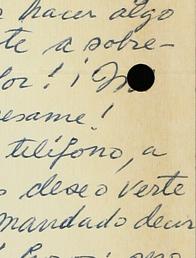 hacer algo
te a sobre-
lor! ¡
esame!
teléfono, a
s deseo verte
mandado decir